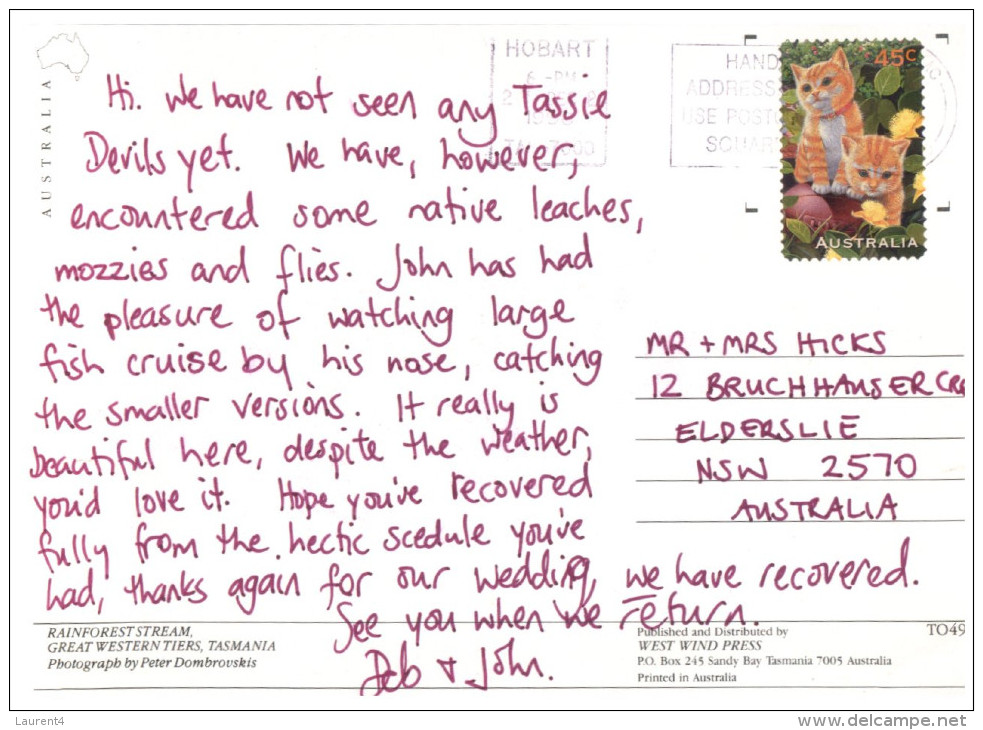 AUSTRALIA
HOBART
6 -PM
1996
TAS 7000
HAND
ADDRESS
USE POSTC
SQUAR
45c
AUSTRALIA
Hi. We have not seen any Tassie
Devils yet. We have, however,
encountered some native leaches,
mozzies and flies. John has had
the pleasure of watching large
fish cruise by his nose, catching
the smaller versions. It really is
beautiful here, despite the weather,
you'd love it. Hope you've recovered
fully from the hectic scedule you've
had, thanks again for our wedding, we have recovered.
See you when we return.
Deb + John.
MR + MRS HICKS
12 BRUCHHAUSER CRE
ELDERSLIE
NSW 2570
AUSTRALIA
RAINFOREST STREAM,
GREAT WESTERN TIERS, TASMANIA
Photograph by Peter Dombrovskis
Published and Distributed by
WEST WIND PRESS
P.O. Box 245 Sandy Bay Tasmania 7005 Australia
Printed in Australia
TO49
Laurent4
www.delcampe.net